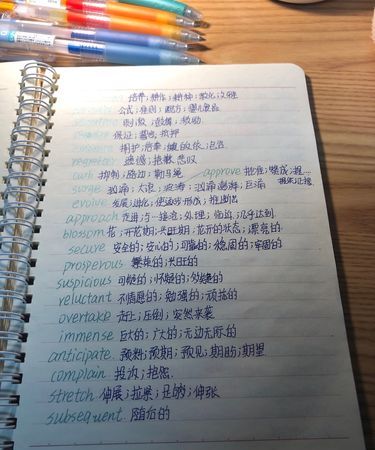 培养；耕作；耕种；教化；文雅
公式；准则；配方；婴儿食品
刺激；鼓舞；鼓励
保证；誓言；抵押
拥护；培养
遗憾；抱歉；悲叹
curb 抑制；路边；勒马绳 approve 批准；赞成
surge 汹涌；大浪；波涛；汹涌澎湃；巨涌
evolve 发展；进化；使逐步形成；推断出
approach 走进；与…接洽；处理；临近；几乎达到
blossom 花；开花期；兴旺期；花开的状态；漂亮的
secure 安全的；安心的；可靠的；稳固的；牢固的
prosperous 繁荣的；兴旺的
suspicious 可疑的；怀疑的
reluctant 不情愿的；勉强的；顽抗的
overtake 赶上；压倒；突然来袭
immense 巨大的；广大的；无边无际的
anticipate 预料；预期；预见；期盼；期望
complain 投诉；抱怨
stretch 伸展；拉紧；足够；伸张
subsequent 随后的